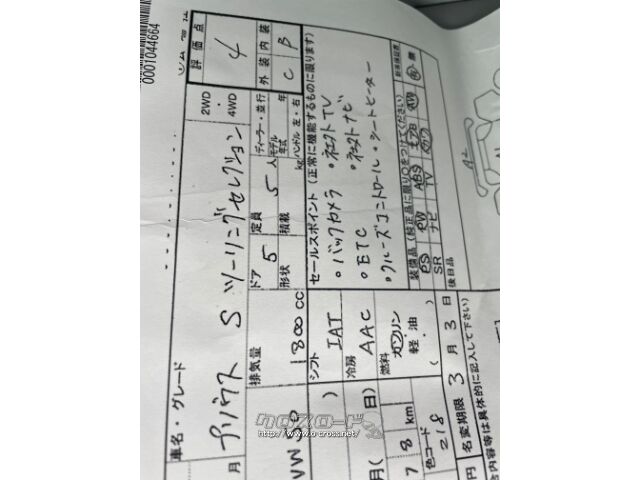 0001044664
評価点
4
外装 内装
C B
車名・グレード
プリウス S ツーリングセレクション
2WD ・ 4WD
ドア 5
定員 5 人
モデル年式 年
ディーラー・並行
排気量 1800 CC
形状
積載 kg
ハンドル 左・右
シフト IAT
セールスポイント(正常に機能するものに限ります)
・バックカメラ ・ネクストTV
・ETC ・ネクストナビ
・クルーズコントロール ・シートヒーター
冷房 AAC
燃料 ガソリン
軽・油
装備品(純正品に限り○をつけてください)
PS PW ABS エアB AW
SR ナビ TV カワ
新車保証書
後日品
A2
8 km
色コード 218
名変期限 3 月 3 日
合内容等は具体的に記入して下さい)
クロスロード
http://www.o-cross.net/